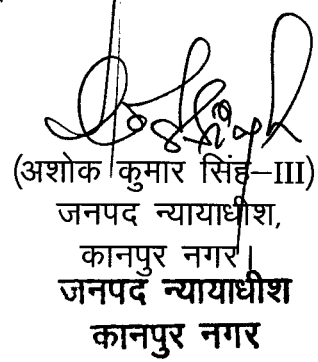 (अशोक कुमार सिंह–III)
जनपद न्यायाधीश,
कानपुर नगर।
जनपद न्यायाधीश
कानपुर नगर